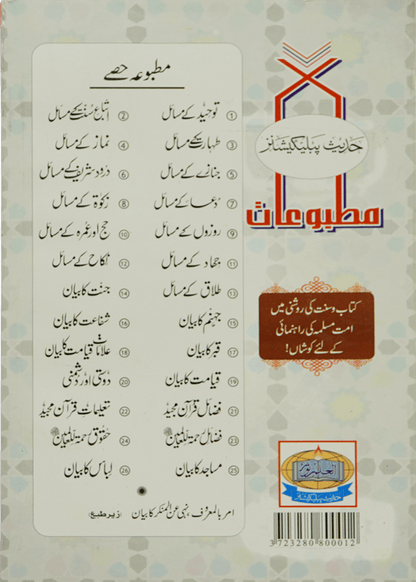 مطبوعہ حصے
① توحید کے مسائل ② اتباع سنت کے مسائل
③ طہارت کے مسائل ④ نماز کے مسائل
⑤ جنازے کے مسائل ⑥ درود شریف کے مسائل
⑦ دُعا کے مسائل ⑧ زکوٰۃ کے مسائل
⑨ روزوں کے مسائل ⑩ حج اور عمرہ کے مسائل
⑪ جہاد کے مسائل ⑫ نکاح کے مسائل
⑬ طلاق کے مسائل ⑭ جنت کا بیان
⑮ جہنم کا بیان ⑯ شفاعت کا بیان
⑰ قبر کا بیان ⑱ علامات قیامت کا بیان
⑲ قیامت کا بیان ⑳ دوستی اور دشمنی
㉑ فضائل قرآن مجید ㉒ تعلیمات قرآن مجید
㉓ فضائل رحمۃ للعالمین ㉔ حقوق رحمۃ للعالمین
㉕ مساجد کا بیان ㉖ لباس کا بیان
امر بالمعروف، نہی عن المنکر کا بیان (زیر طبع)
حدیث پبلیکیشنز
مطبوعات
کتاب و سنت کی روشنی میں
امت مسلمہ کی راہنمائی
کے لئے کوشاں!
حدیث پبلیکیشنز
3723280800012